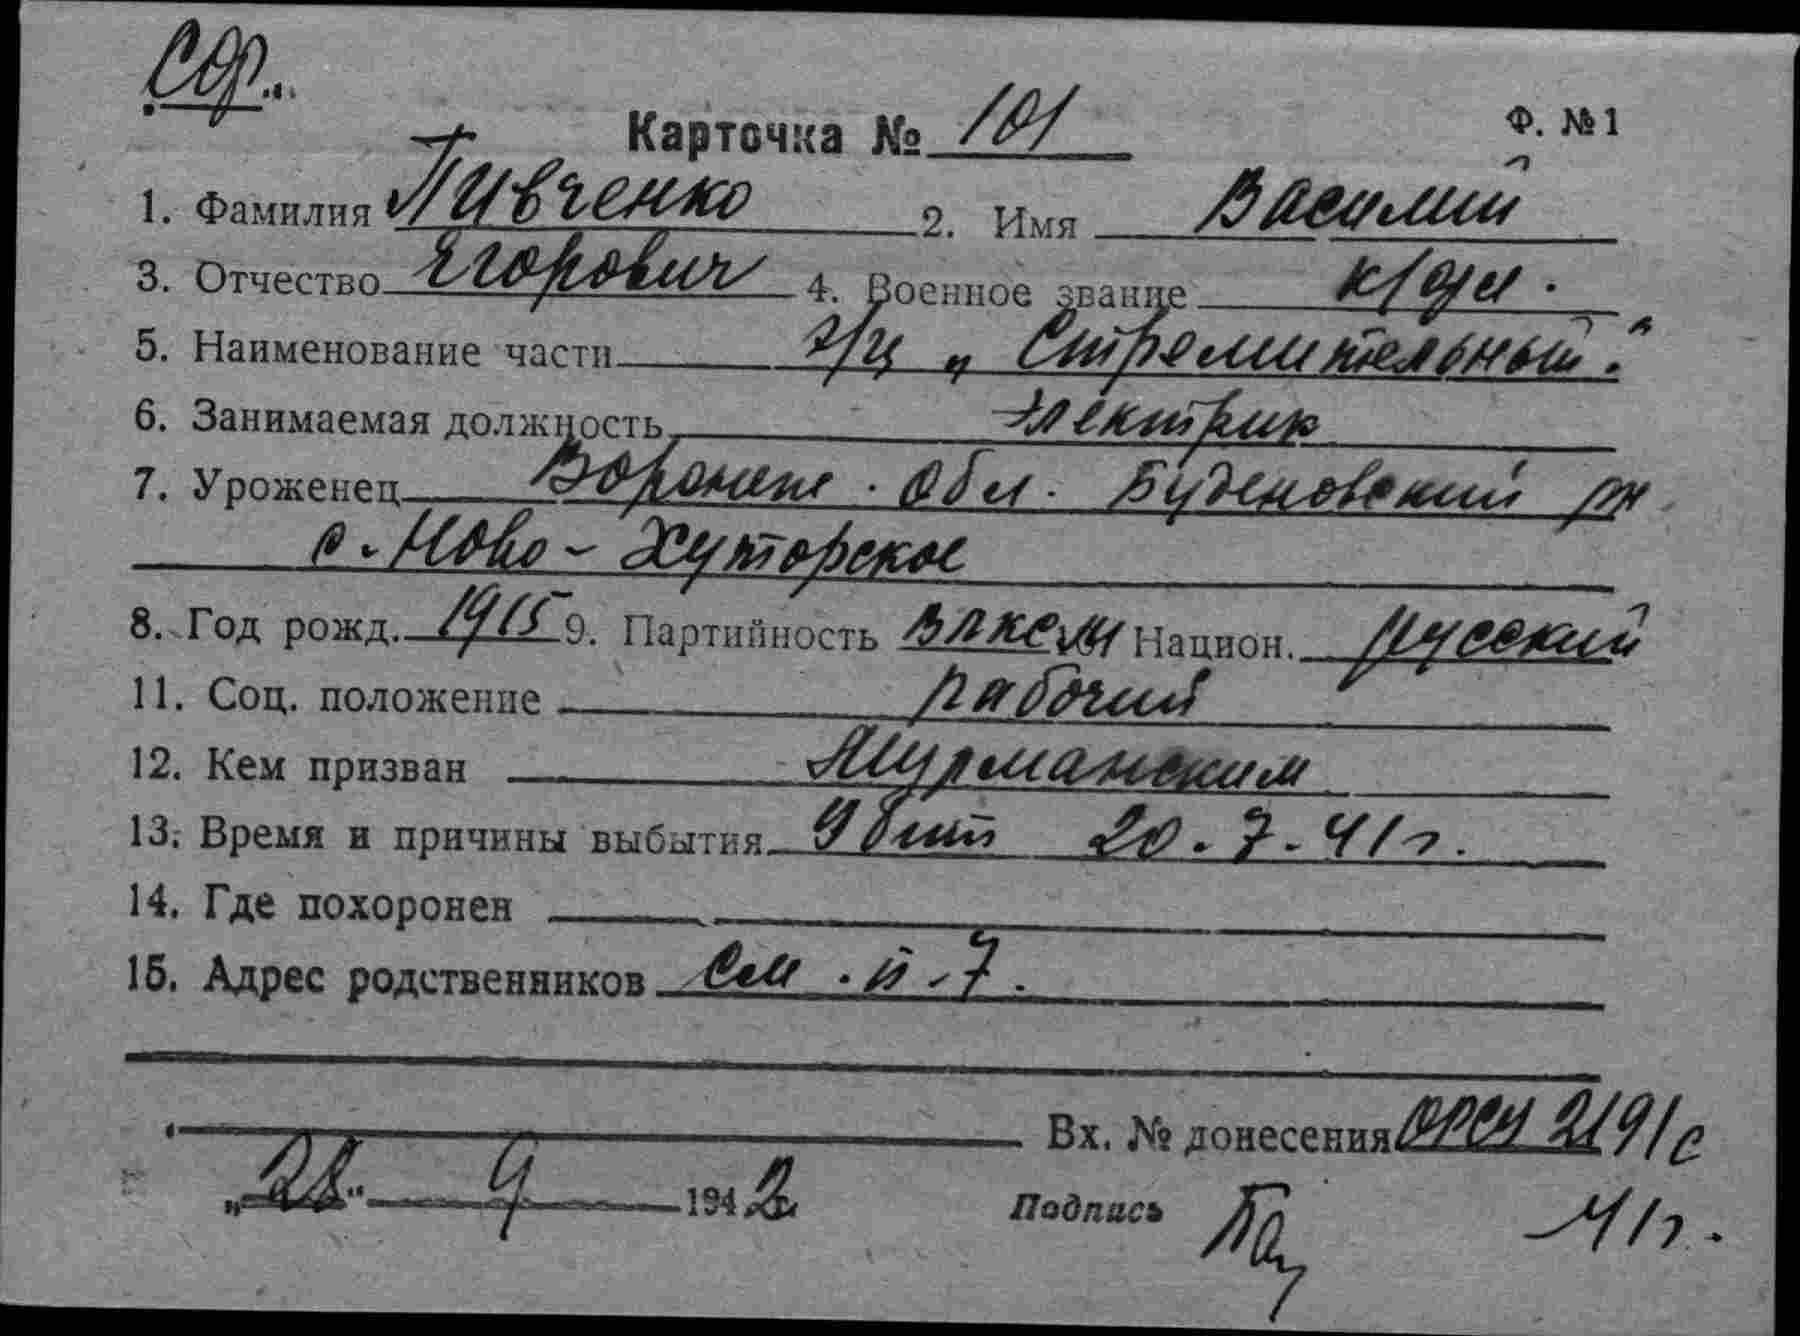 Сор.
Карточка № 101
Ф. № 1
1. Фамилия Пивченко 2. Имя Василий
3. Отчество Егорович 4. Военное звание к/фл.
5. Наименование части э/м „Стремительный".
6. Занимаемая должность Электрик
7. Уроженец Воронеж. обл. Буденовский рн
с. Ново-Хуторское
8. Год рожд. 1915 9. Партийность ВЛКСМ Национ. русский
11. Соц. положение рабочий
12. Кем призван Мурманским
13. Время и причины выбытия Убит 20.7.41 г.
14. Где похоронен
15. Адрес родственников см. п. 7.
Вх. № донесения 2191с
„28" 9 1942
Подпись
41г.